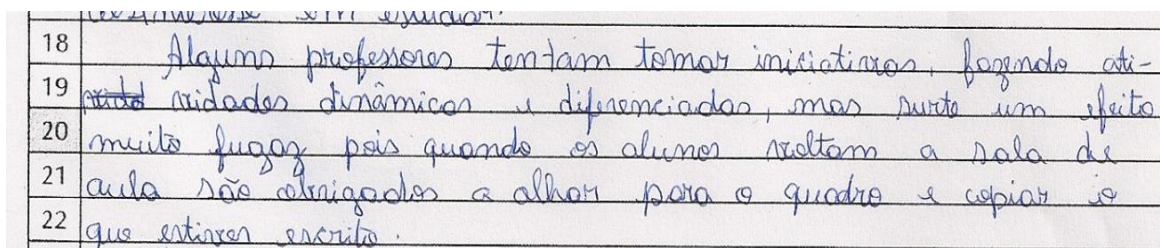 em estudar.
18 Alguns professores tentam tomar iniciativas, fazendo ati-
19 vidades dinâmicas e diferenciadas, mas surte um efeito
20 muito fugaz pois quando os alunos voltam a sala de
21 aula são obrigados a olhar para o quadro e copiar o
22 que estiver escrito.